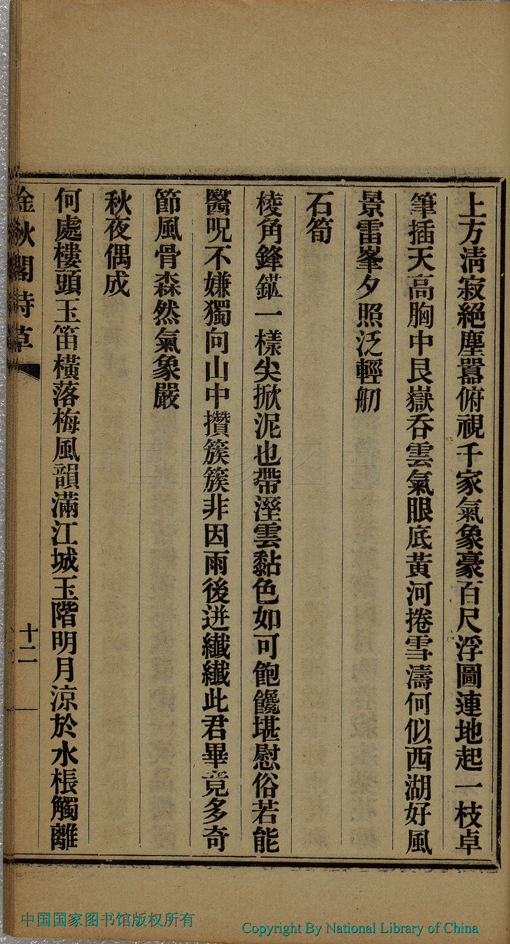 上方淸寂絕塵囂俯視千家氣象豪百尺浮圖連地起一枝卓
筆插天高胸中艮嶽呑雲氣眼底黃河捲雪濤何似西湖好風
景雷峯夕照泛輕舠
石筍
棱角鋒鋩一樣尖掀泥也帶溼雲黏色如可飽饞堪慰俗若能
醫呪不嫌獨向山中攢簇簇非因雨後迸纖纖此君畢竟多奇
節風骨森然氣象嚴
秋夜偶成
何處樓頭玉笛橫落梅風韻滿江城玉階明月涼於水棖觸離
金秋閣詩草
十二
中国国家图书馆版权所有
Copyright By National Library of China